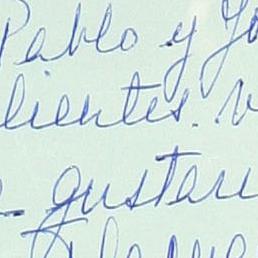 Pablo y Yo
lientes. v
- gustan